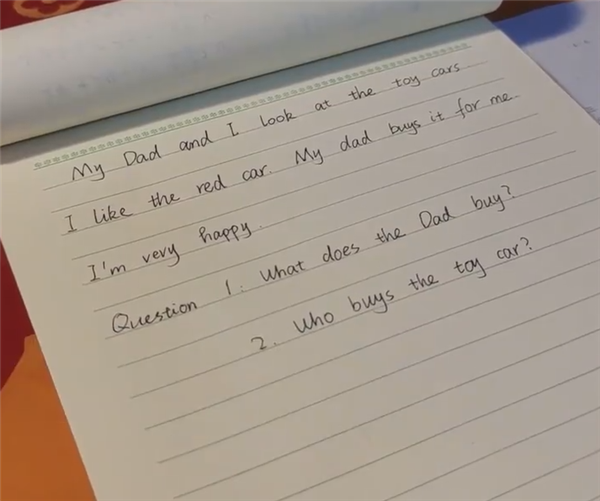 My Dad and I look at the toy cars
I like the red car. My dad buys it for me.
I'm very happy.
Question 1: What does the Dad buy?
2. Who buys the toy car?